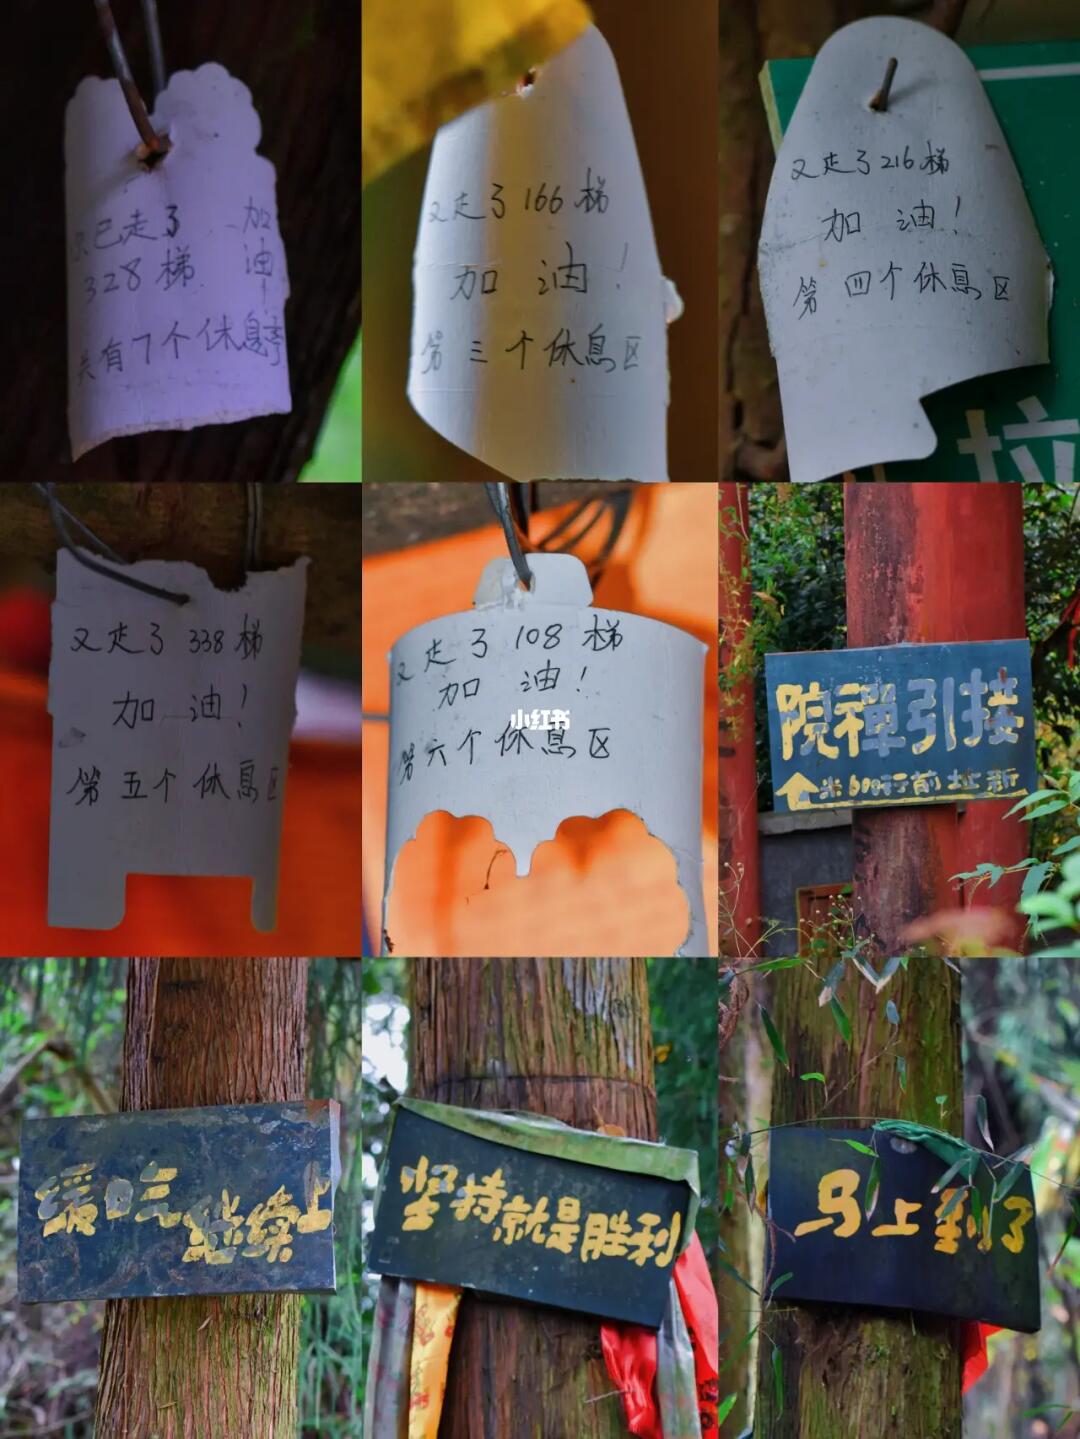 已走了
328梯
加
油
共有7个休息亭
又走了166梯
加油!
第三个休息区
又走了216梯
加油!
第四个休息区
拉
又走了338梯
加油!
第五个休息区
又走了108梯
加油!
第六个休息区
小红书
接引禅院
新址前行600米
缓口元继续上
坚持就是胜利
马上到了